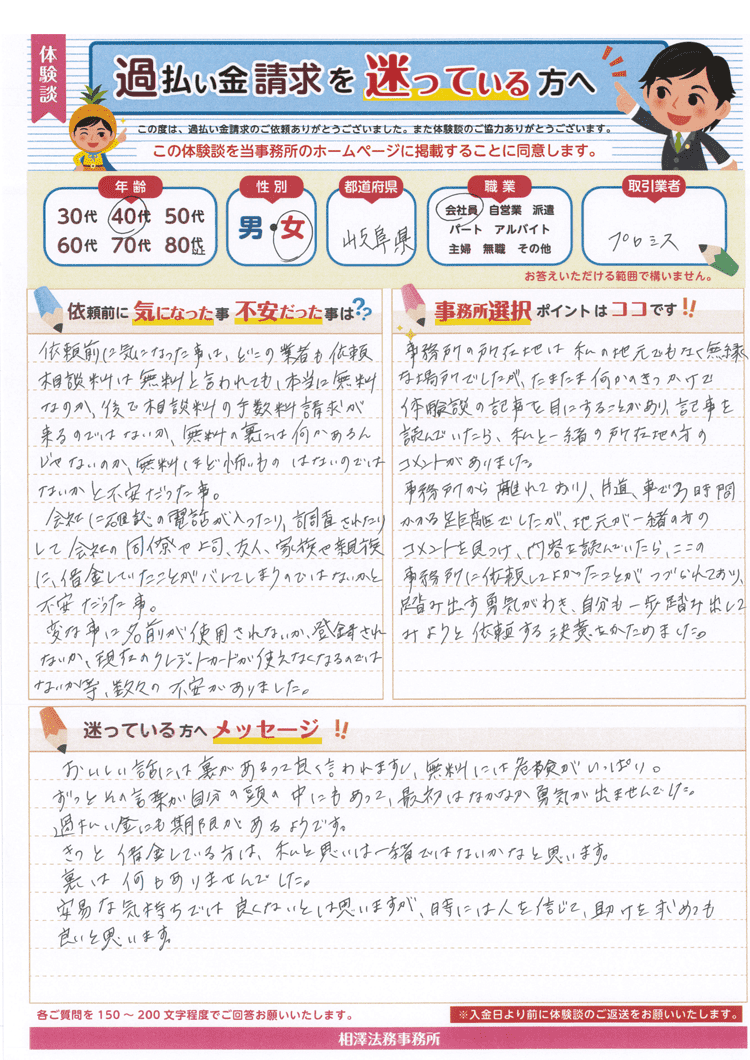 体験談
過払い金請求を迷っている方へ
この度は、過払い金請求のご依頼ありがとうございました。また体験談のご協力ありがとうございます。
この体験談を当事務所のホームページに掲載することに同意します。
年齢
30代 40代 50代
60代 70代 80代以上
性別
男・女
都道府県
岐阜県
職業
会社員 自営業 派遣
パート アルバイト
主婦 無職 その他
取引業者
プロミス
お答えいただける範囲で構いません。
依頼前に気になった事 不安だった事は??
依頼前に気になった事は、どこの業者も依頼
相談料は無料と言われても、本当に無料
なのか、後で相談料の手数料請求が
来るのではないか、無料の裏には何かあるん
じゃないのか、無料ほど怖いものはないのでは
ないかと不安だった事。
会社に確認の電話が入ったり、調査されたり
して会社の同僚や上司、友人、家族や親族
に、借金していたことがバレてしまうのではないかと
不安だった事。
変な事に名前が使用されないか、登録され
ないか、現在のクレジットカードが使えなくなるのでは
ないか等、数々の不安がありました。
事務所選択ポイントはココです!!
事務所の所在地は私の地元でもなく無縁
な場所でしたが、たまたま何かのきっかけで
体験談の記事を目にすることがあり、記事を
読んでいたら、私と一緒の所在地の方の
コメントがありました。
事務所から離れており、片道、車で3時間
かかる距離でしたが、地元が一緒の方の
コメントを見つけ、内容を読んでいたら、ここの
事務所に依頼してよかったことがつづられており、
踏み出す勇気がわき、自分も一歩踏み出して
みようと依頼する決意をかためました。
迷っている方へメッセージ!!
おいしい話には裏があるって良く言われますし、無料には危険がいっぱい。
ずっとその言葉が自分の頭の中にもあって、最初はなかなか勇気が出ませんでした。
過払い金にも期限があるようです。
きっと借金している方は、私と思いは一緒ではないかなと思います。
裏は何もありませんでした。
安易な気持ちでは良くないとは思いますが、時には人を信じて、助けを求めても
良いと思います。
各ご質問を150～200文字程度でご回答お願いいたします。
※入金日より前に体験談のご返送をお願いいたします。
相澤法務事務所